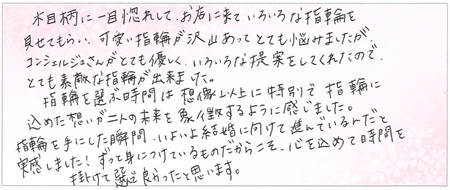 木目柄に一目惚れして、お店に来ていろいろな指輪を
見せてもらい、可愛い指輪が沢山あってとても悩みましたが
コンシェルジュさんがとても優しく、いろいろな提案をしてくれたので、
とても素敵な指輪が出来ました。
指輪を選ぶ時間は想像以上に特別で指輪に
込めた想いが二人の未来を象徴するように感じました。
指輪を手にした瞬間、いよいよ結婚に向けて進んでいるんだと
実感しました!ずっと身につけているものだからこそ、心を込めて時間を
掛けて選んで良かったと思います。